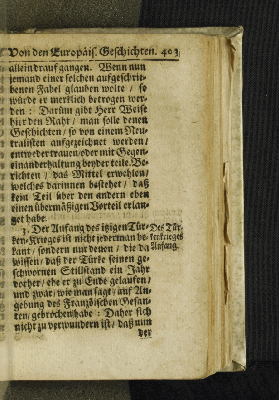 Von den Europäis. Geschichten. 403
allein drauf gangen. Wenn nun
jemand einer solchen aufgeschrie-
benen Fabel glauben wolte / so
würde er merklich betrogen wer-
den: Darüm gibt Herr Weise
hier den Raht / man solle denen
Geschichten / so von einem Neu-
tralisten aufgezeichnet werden /
entweder trauen / oder mit Gegen-
einanderhaltung beyder teile Be-
richten / das Mittel erwehlen /
welches darinnen bestehet / daß
kein Teil über den andern eben
einen übermäßigen Vorteil erlan-
get habe.
3. Der Anfang des itzigen Tür-
ken-Krieges ist nicht jederman be-
kant / sondern nur denen / die da
wissen / daß der Türke seinen ge-
schwornen Stillstand ein Jahr
vorher / ehe er zu Ende gelaufen /
und zwar / wie man sagt / auf An-
gebung des Französischen Gesan-
ten / gebrochen habe: Daher sich
nicht zu verwundern ist / daß nun
der
Des Tür-
kenkrieges
Anfang.